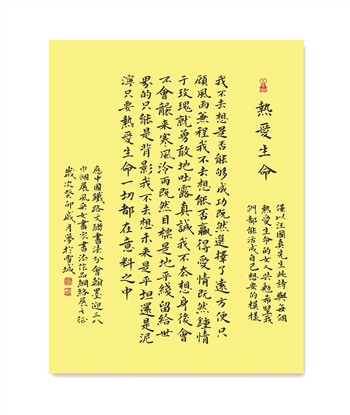 熱愛生命
謹以汪國真先生此詩與每個
熱愛生命的女人共勉希望我
們都能活成自己想要的模樣
我不去想是否能够成功既然選擇了遠方便只
顧風雨兼程我不去想能否贏得愛情既然鍾情
于玫瑰就勇敢地吐露真誠我不去想身後會
不會襲来寒風冷雨既然目標是地平綫留給世
界的只能是背影我不去想未来是平坦還是泥
濘只要熱愛生命一切都在意料之中
應中國鐵路文聯書法分會翰墨迎三八
巾幗展風采女書家書法作品網絡展之征
歲次癸卯歲月夢於雪城